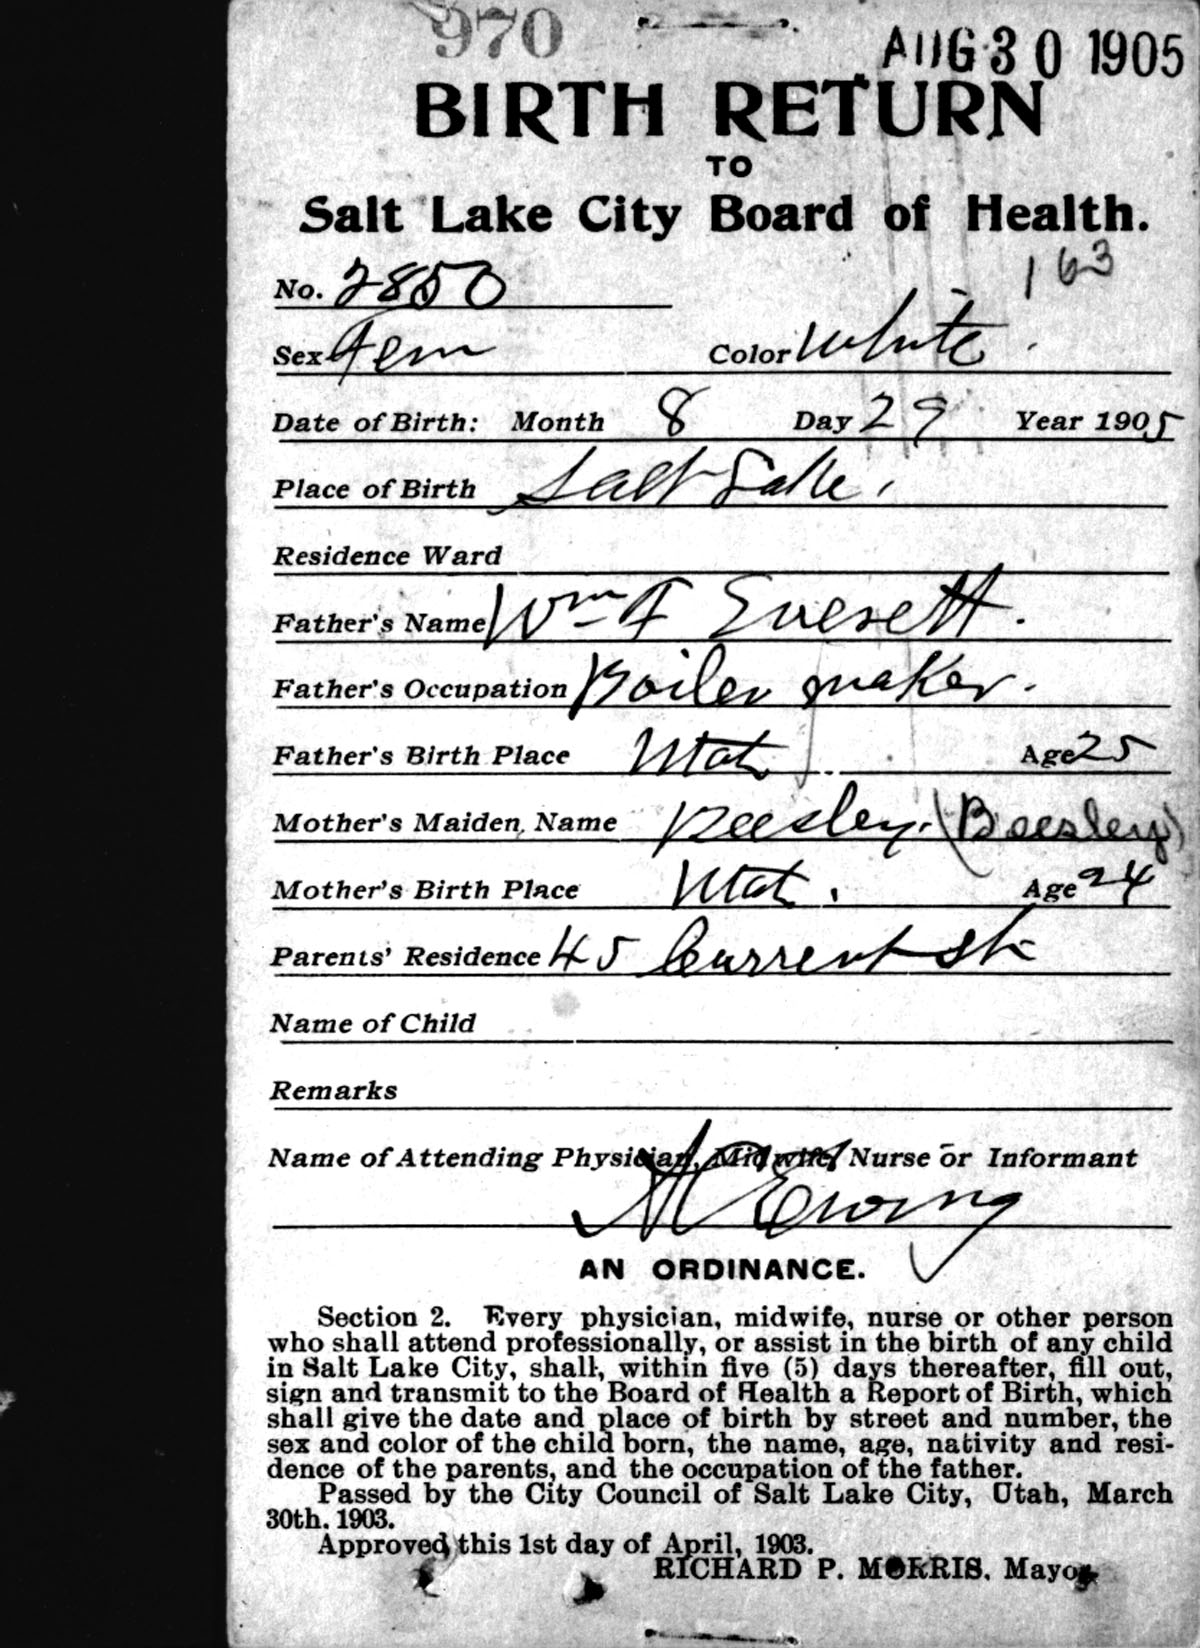 970
AUG 30 1905
BIRTH RETURN
TO
Salt Lake City Board of Health.
163
No. 2850
Sex Fem Color White.
Date of Birth: Month 8 Day 29 Year 1905
Place of Birth Salt Lake.
Residence Ward
Father's Name Wm F Everett.
Father's Occupation Boiler maker.
Father's Birth Place Utah Age 25
Mother's Maiden Name Beesley. (Beesley)
Mother's Birth Place Utah. Age 24
Parents' Residence 45 Current St
Name of Child
Remarks
Name of Attending Physician, Midwife, Nurse or Informant
Ewing
AN ORDINANCE.
Section 2. Every physician, midwife, nurse or other person
who shall attend professionally, or assist in the birth of any child
in Salt Lake City, shall, within five (5) days thereafter, fill out,
sign and transmit to the Board of Health a Report of Birth, which
shall give the date and place of birth by street and number, the
sex and color of the child born, the name, age, nativity and resi-
dence of the parents, and the occupation of the father.
Passed by the City Council of Salt Lake City, Utah, March
30th, 1903.
Approved this 1st day of April, 1903.
RICHARD P. MORRIS, Mayor